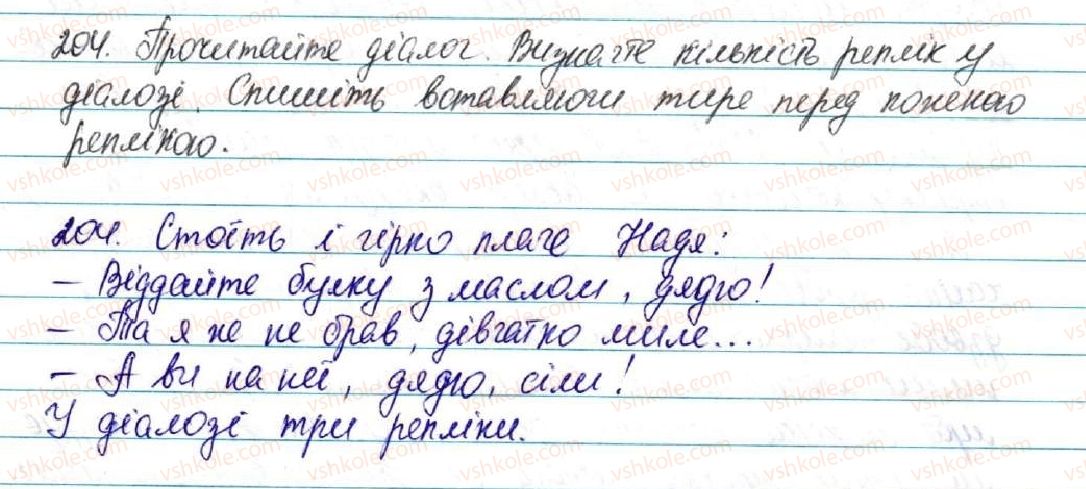 204. Прочитайте діалог. Визначте кількість реплік у
діалозі. Спишіть вставляючи тире перед кожною
реплікою.
204. Стоїть і гірко плаче Надя:
– Віддайте булку з маслом, дядю!
– Та я ж не брав, дівчатко миле...
– А ви на неї, дядю, сіли!
У діалозі три репліки.